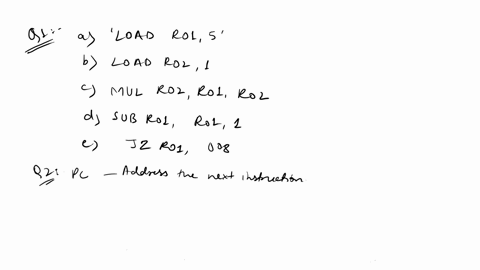 Q1:-  a) 'LOAD R01, 5'
b) LOAD R02, 1
c) MUL R02, R01, R02
d) SUB R01, R01, 1
e) JZ R01, 008
Q2: PC — Address the next instruction